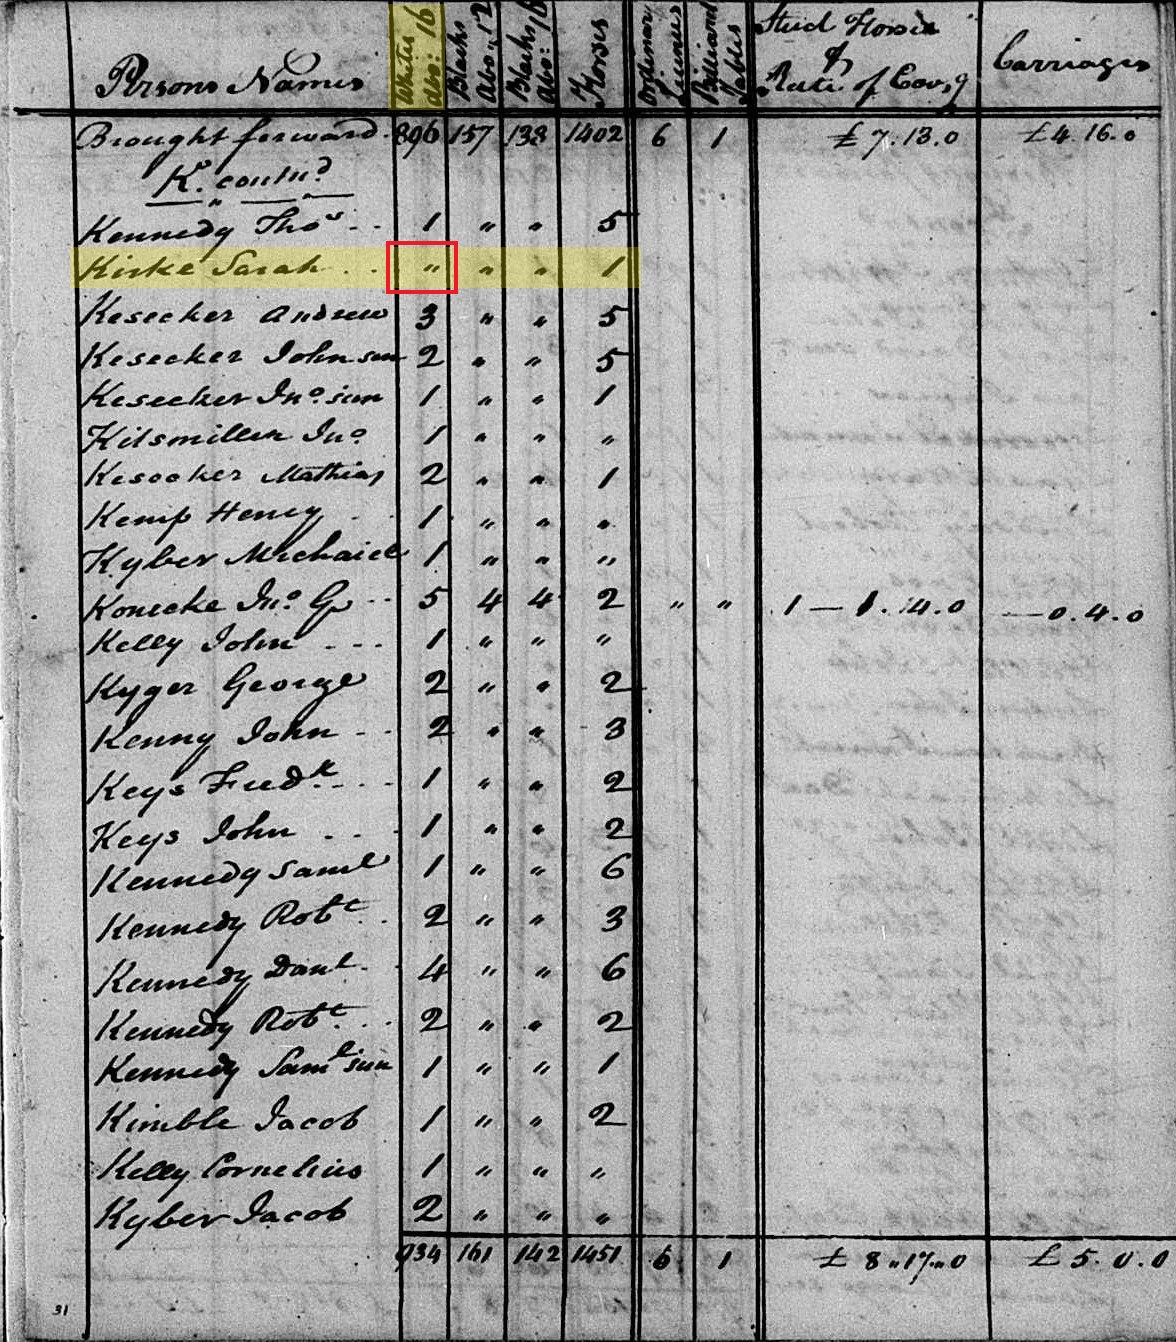 Persons Names Whites abo: 16 Blacks Abo: 12 Blacks Abo: 16 Horses Ordinary Licences Billiard Tables Stud Horses & Rate of Cov,g Carriages
Brought forward. 896 157 138 1402 6 1 £7.13.0 £4.16.0
K. contnd
Kennedy Thos - - 1 " " 5
Kirke Sarah - - " " " 1
Kesecker Andrew 3 " " 5
Kesecker John sen 2 " " 5
Kesecker Jno. jun 1 " " 1
Kitsmiller Jno 1 " " "
Kesecker Mathias 2 " " 1
Kemp Henry 1 " " "
Kyber Michaiel 1 " " "
Konecke Jno. G - - 5 4 4 2 " " 1 — 1.14.0 — 0.4.0
Kelly John - - - 1 " " "
Kyger George 2 " " 2
Kenny John - - 2 " " 3
Keys Fredk. - - - 1 " " 2
Keys John - - - 1 " " 2
Kennedy Saml 1 " " 6
Kennedy Robt . . 2 " " 3
Kennedy Danl. - 4 " " 6
Kennedy Robt. . . 2 " " 2
Kennedy Saml jun 1 " " 1
Kimble Jacob 1 " " 2
Kelly Cornelius 1 " " "
Kyber Jacob 2 " " "
934 161 142 1451 6 1 £8.17.0 £5.0.0
31